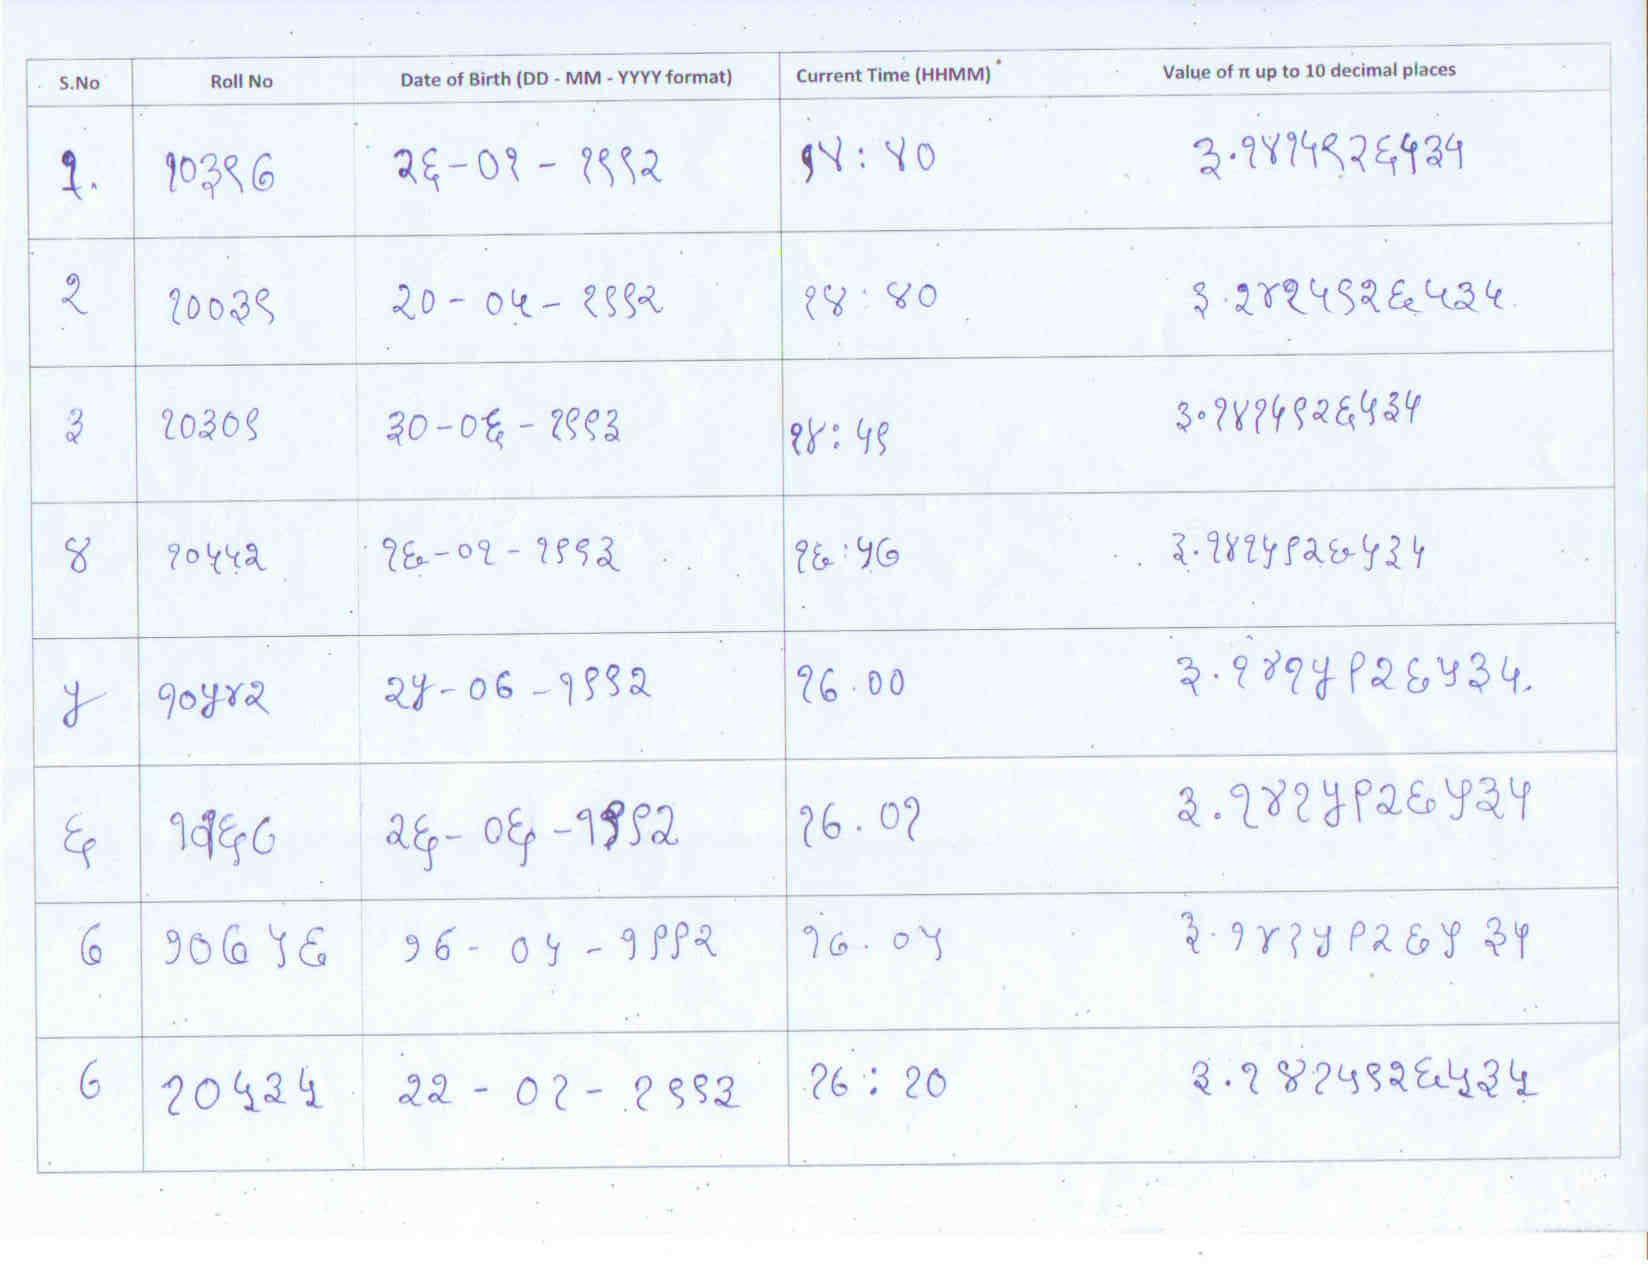 S.No Roll No Date of Birth (DD - MM - YYYY format) Current Time (HHMM) * Value of π up to 10 decimal places
१. १०३९७ २६-०१-१९९२ १४:४० ३.१४१५९२६५३५
२ १००३९ २०-०५-१९९२ १४:४० ३.१४१५९२६५३५.
३ १०३०९ ३०-०६-१९९३ १४:५९ ३.१४१५९२६५३५
४ १०५५२ १६-०१-१९९३ १६:५७ ३.१४१५९२६५३५
५ १०५४२ २५-०७-१९९२ १७.०० ३.१४१५९२६५३५.
६ २६-०६-१९९२ १७.०१ ३.१४१५९२६५३५
७ १०७५६ १७-०५-१९९२ १७.०५ ३.१४१५९२६५३५
७ १०५३५ २२-०१-१९९३ १७:१० ३.१४१५९२६५३५